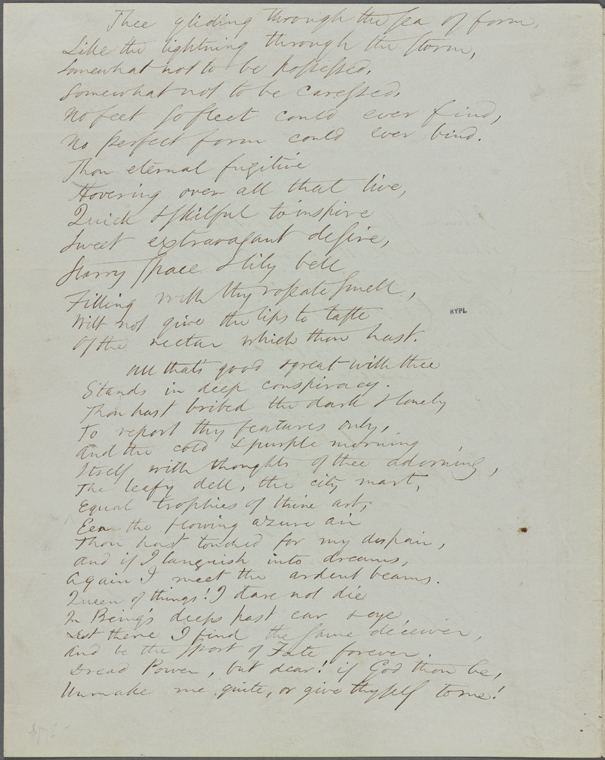 Thee gliding through the sea of form,
Like the lightning through the storm,
Somewhat not to be possessed,
Somewhat not to be caressed,
No feet so fleet could ever find,
No perfect form could ever bind.
Thou eternal fugitive
Hovering over all that live,
Quick & skilful to inspire
Sweet extravagant desire,
Starry space & lily bell
Filling with thy roseate smell,
Wilt not give the lips to taste
Of the nectar which thou hast.
All that's good & great with thee
Stands in deep conspiracy.
Thou hast bribed the dark & lonely
To report thy features only,
And the cold & purple morning
Itself with thoughts of thee adorning,
The leafy dell, the city mart,
Equal trophies of thine art,
Een the flowing azure air
Thou hast touched for my despair,
And if I languish into dreams,
Again I meet the ardent beams.
Queen of things! I dare not die
In Being's deeps past ear & eye,
Lest there I find the same deceiver,
And be the sport of Fate forever.
Dread Power, but dear! if God thou be,
Unmake me quite, or give thyself to me!
NYPL